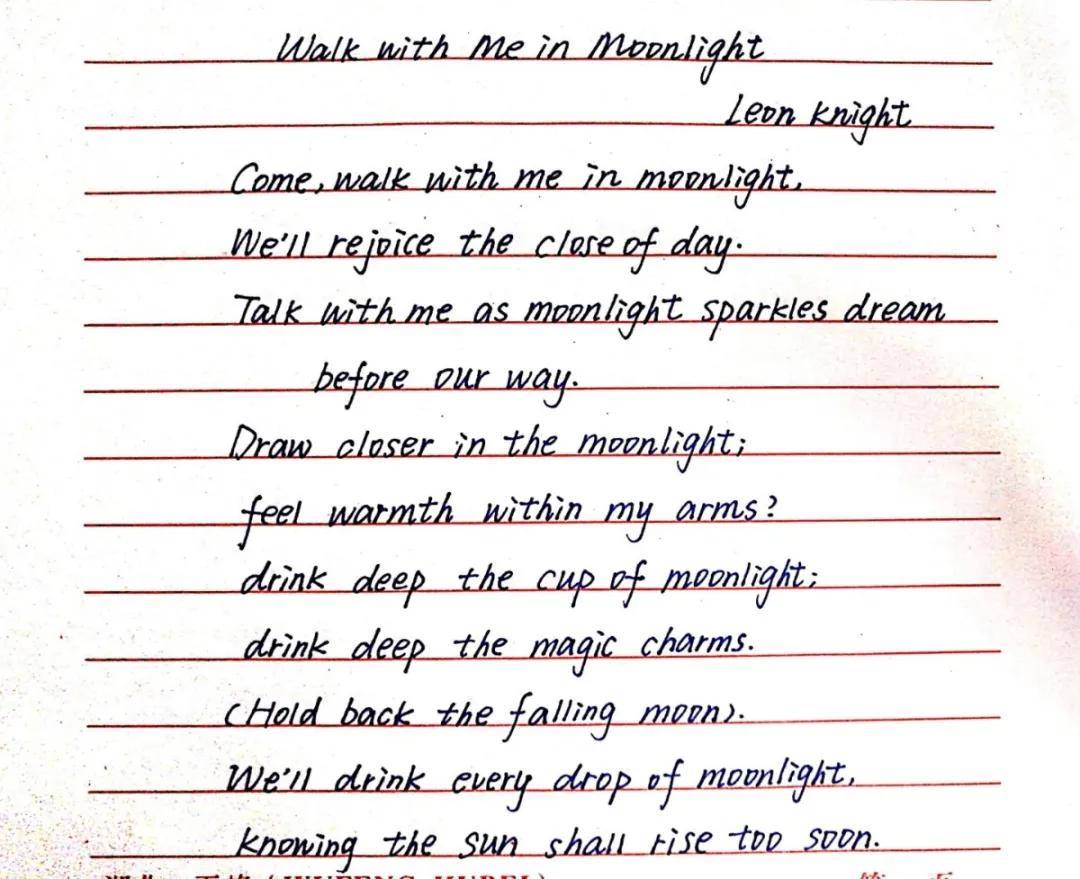 Walk with Me in Moonlight
Leon Knight
Come, walk with me in moonlight,
We'll rejoice the close of day.
Talk with me as moonlight sparkles dream
before our way.
Draw closer in the moonlight;
feel warmth within my arms?
drink deep the cup of moonlight;
drink deep the magic charms.
(Hold back the falling moon).
We'll drink every drop of moonlight,
knowing the sun shall rise too soon.